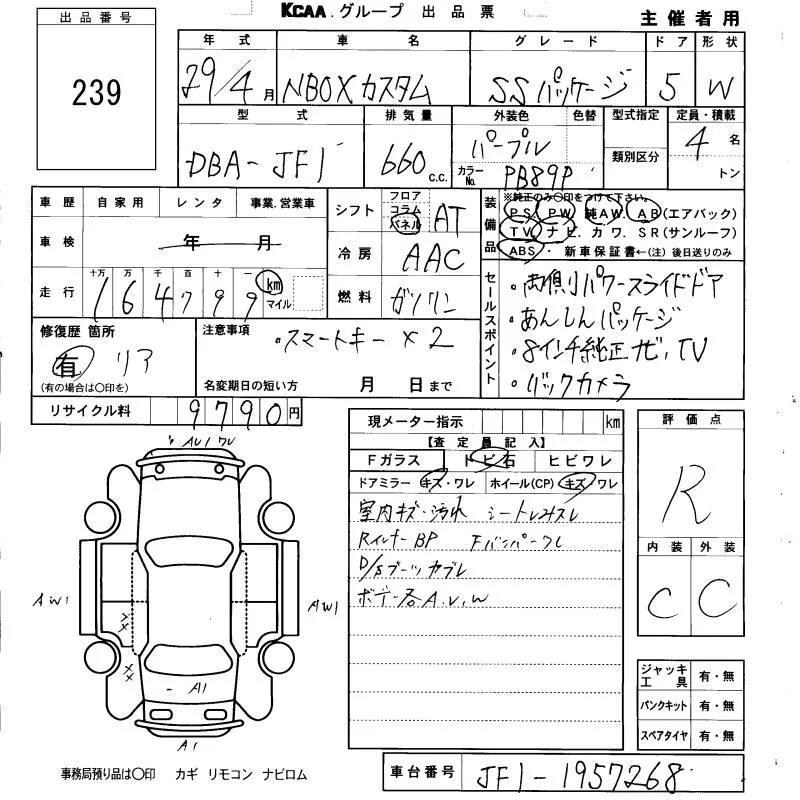 KCAA.グループ 出品票
主催者用
出品番号
239
年式 車名 グレード ドア 形状
29/4月 NBOXカスタム SSパッケージ 5 W
型式 排気量 外装色 色替 型式指定 定員・積載
DBA-JF1 660 c.c. パープル 類別区分 4名
カラーNo. PB89P トン
車歴 自家用 レンタ 事業.営業車
車検 年 月
走行 十万 万 千 百 十 一
164799 km マイル
シフト フロア コラム パネル AT
冷房 AAC
燃料 ガソリン
装備品 ※純正のみ○印をつけて下さい。
PS. PW. 純AW. AB(エアバック)
TV. ナビ. カワ. SR(サンルーフ)
ABS. 新車保証書←(注)後日送りのみ
セールスポイント
・両側パワースライドドア
・あんしんパッケージ
・8インチ純正ナビ、TV
・バックカメラ
修復歴 箇所
有 リア
(有の場合は○印を)
注意事項
・スマートキー×2
名変期日の短い方 月 日まで
リサイクル料 9790円
現メーター指示 km
【査定員記入】
Fガラス トビ石 ヒビワレ
ドアミラー キズ・ワレ ホイール(CP) キズ ワレ
室内キズ・汚れ シートレスミスレ
Rインナー BP Fバンパーワレ
D/Sブーツカブレ
ボデー各A.U.W
評価点
R
内装 外装
C C
AU1
AW1
AW1
A1
A1
ジャッキ工具 有・無
パンクキット 有・無
スペアタイヤ 有・無
事務局預り品は○印 カギ リモコン ナビロム
車台番号 JF1-1957268